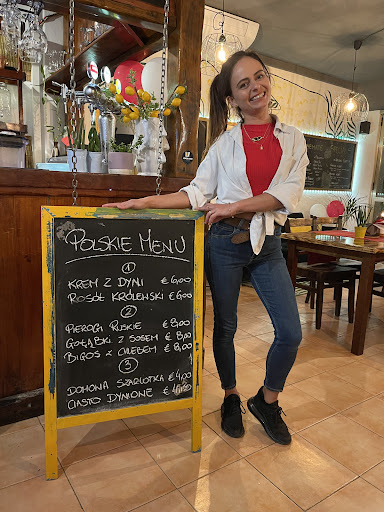 POLSKIE MENU
1
KREM Z DYNI €6,00
ROSÓŁ KRÓLEWSKI €6,00
2
PIEROGI RUSKIE €8,00
GOŁĄBKI Z SOSEM €8,00
BIGOS Z CHLEBEM €8,00
3
DOMOWA SZARLOTKA €4,00
CIASTO DYNIOWE €4,00